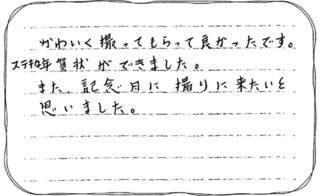 かわいく撮ってもらって良かったです。
ステキな年賀状ができました。
また、記念日に撮りに来たいと
思いました。